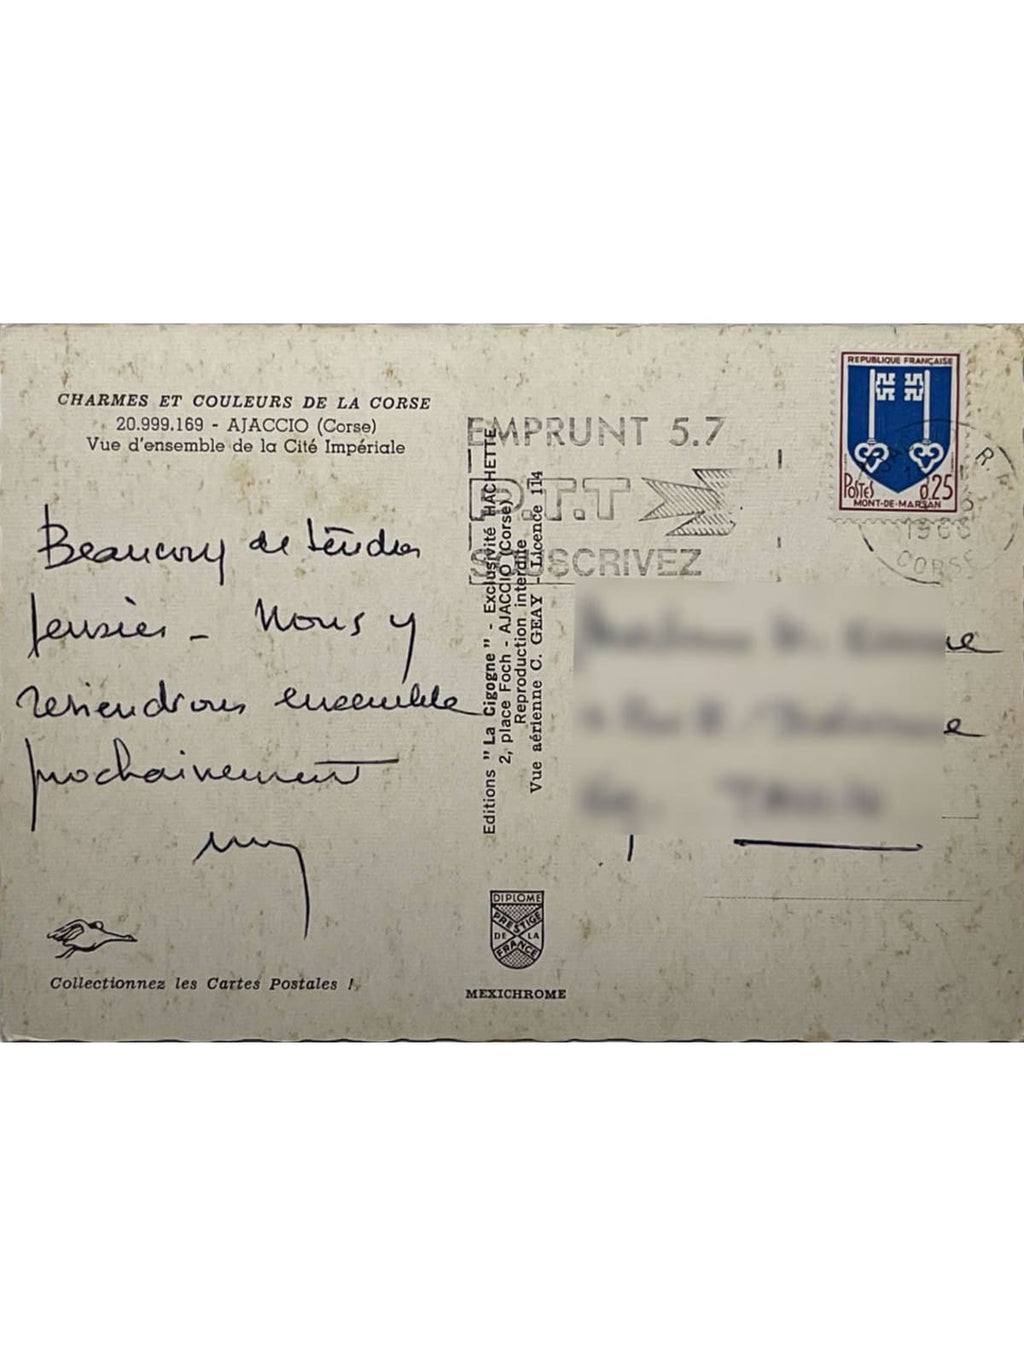 CHARMES ET COULEURS DE LA CORSE
20.999.169 - AJACCIO (Corse)
Vue d'ensemble de la Cité Impériale
Beaucoup de tendres
pensées - Nous y
reviendrons ensemble
prochainement
Collectionnez les Cartes Postales !
EMPRUNT 5.7
P.T.T
SOUSCRIVEZ
Editions "La Cigogne" - Exclusivité HACHETTE
2, place Foch - AJACCIO (Corse)
Reproduction interdite
Vue aérienne C. GEAY - Licence 114
DIPLOME
PRESTIGE
DE LA
FRANCE
MEXICHROME
REPUBLIQUE FRANÇAISE
POSTES 0.25
MONT-DE-MARSAN
R.P.
1966
CORSE